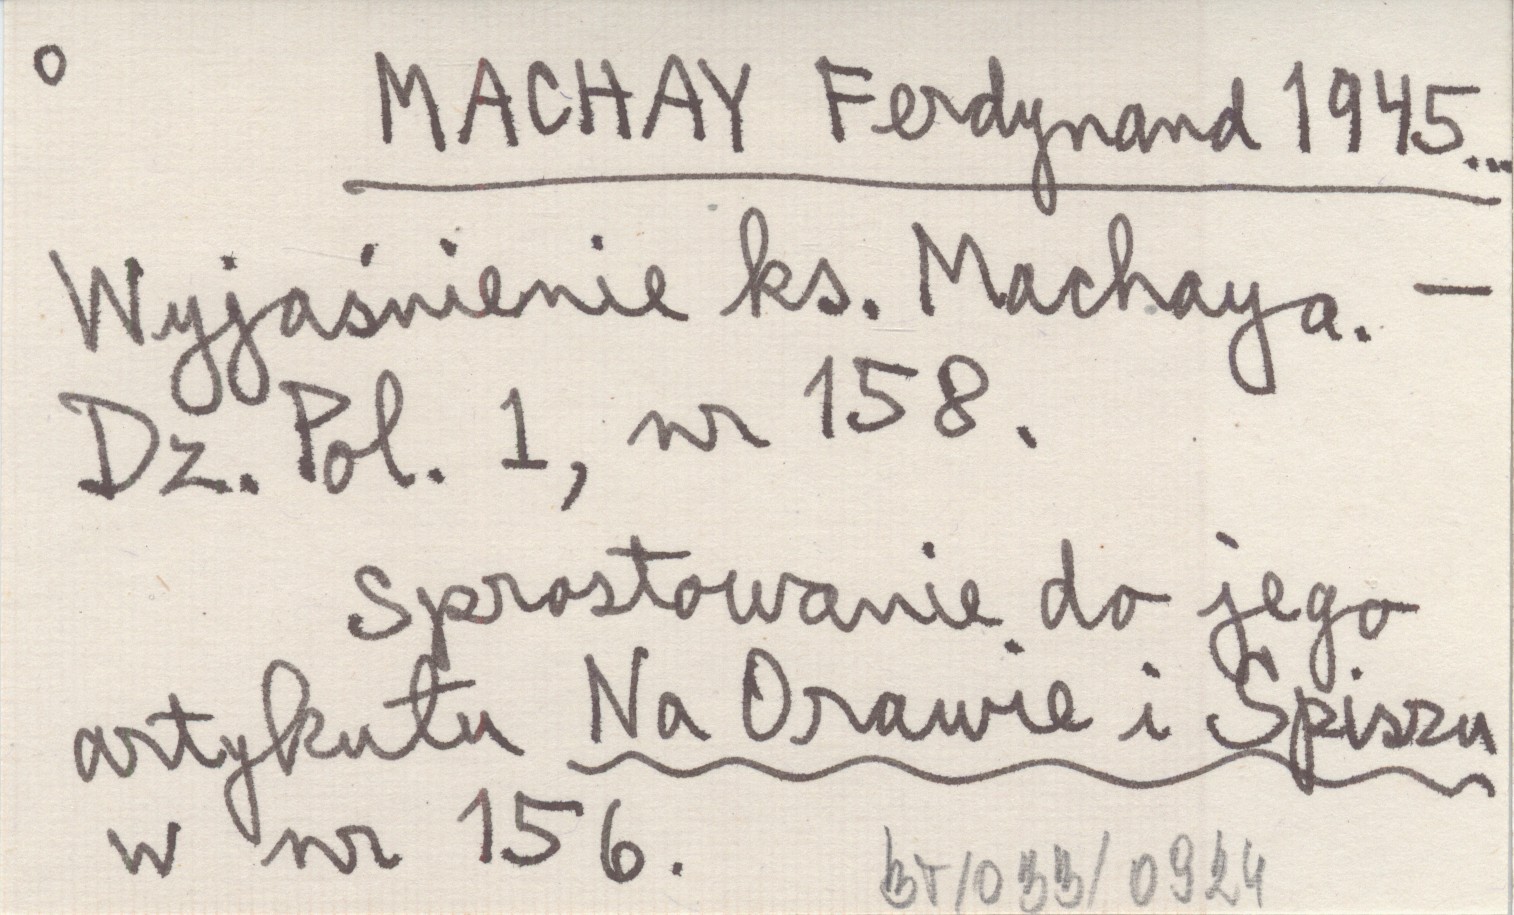 o
MACHAY Ferdynand 1945...
Wyjaśnienie ks. Machaya. —
Dz. Pol. 1, nr 158.
Sprostowanie do jego
artykułu Na Orawie i Spiszu
w nr 156.
BT/033/0924